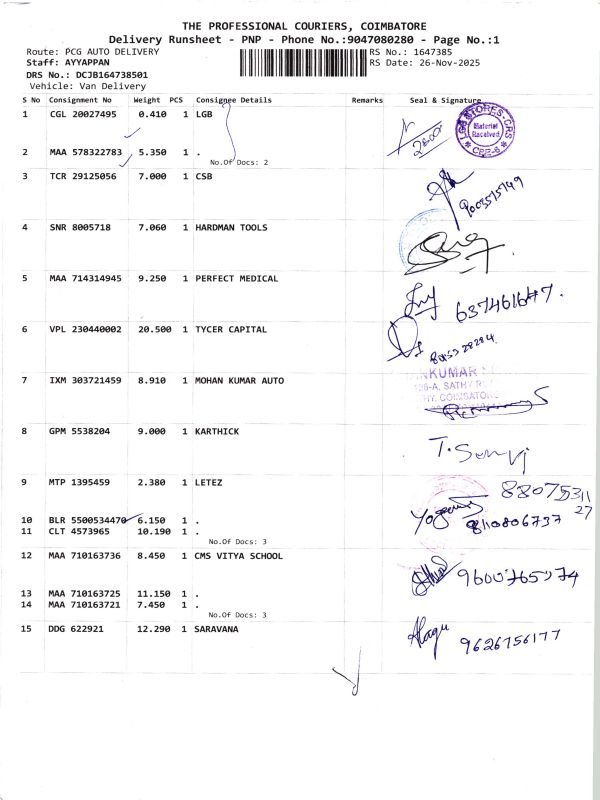 THE PROFESSIONAL COURIERS, COIMBATORE
Delivery Runsheet - PNP - Phone No.:9047080280 - Page No.:1
Route: PCG AUTO DELIVERY
RS No.: 1647385
Staff: AYYAPPAN
RS Date: 26-Nov-2025
DRS No.: DCJB164738501
Vehicle: Van Delivery
S No Consignment No Weight PCS Consignee Details Remarks Seal & Signature
1 CGL 20027495 0.410 1 LGB
LGB STORES-CRS
Material
Received
CBE-6
2 MAA 578322783 5.350 1 .
No.Of Docs: 2
3 TCR 29125056 7.000 1 CSB
4 SNR 8005718 7.060 1 HARDMAN TOOLS
5 MAA 714314945 9.250 1 PERFECT MEDICAL
6 VPL 230440002 20.500 1 TYCER CAPITAL
7 IXM 303721459 8.910 1 MOHAN KUMAR AUTO
8 GPM 5538204 9.000 1 KARTHICK
9 MTP 1395459 2.380 1 LETEZ
8807531127
10 BLR 5500534470 6.150 1 .
8110806737
11 CLT 4573965 10.190 1 .
No.Of Docs: 3
12 MAA 710163736 8.450 1 CMS VITYA SCHOOL
13 MAA 710163725 11.150 1 .
14 MAA 710163721 7.450 1 .
No.Of Docs: 3
15 DDG 622921 12.290 1 SARAVANA
9626756177